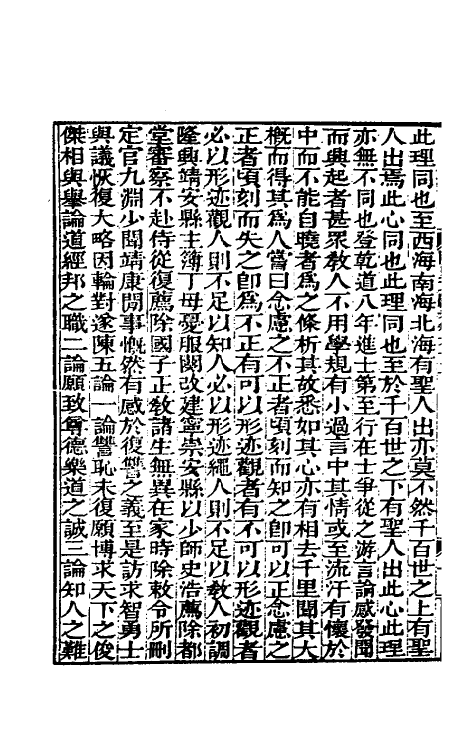 此理同也至西海南海北海有聖人出亦莫不然千百世之上有聖
人出焉此心同也此理同也至於千百世之下有聖人出此心此理
亦無不同也登乾道八年進士第至行在士爭從之游言論感發聞
而興起者甚眾敎人不用學規有小過言中其情或至流汗有懷於
中而不能自曉者爲之條析其故悉如其心亦有相去千里聞其大
槪而得其爲人嘗曰念慮之不正者頃刻而知之卽可以正念慮之
正者頃刻而失之卽爲不正有可以形迹觀者有不可以形迹觀者
必以形迹觀人則不足以知人必以形迹繩人則不足以敎人初調
隆興靖安縣主簿丁母憂服闋改建寧崇安縣以少師史浩薦除都
堂審察不赴侍從復薦除國子正敎諸生無異在家時除敕令所刪
定官九淵少聞靖康閒事慨然有感於復讐之義至是訪求智勇士
與議恢復大略因輪對遂陳五論一論讐恥未復願博求天下之俊
傑相與舉論道經邦之職二論願致尊德樂道之誠三論知人之難